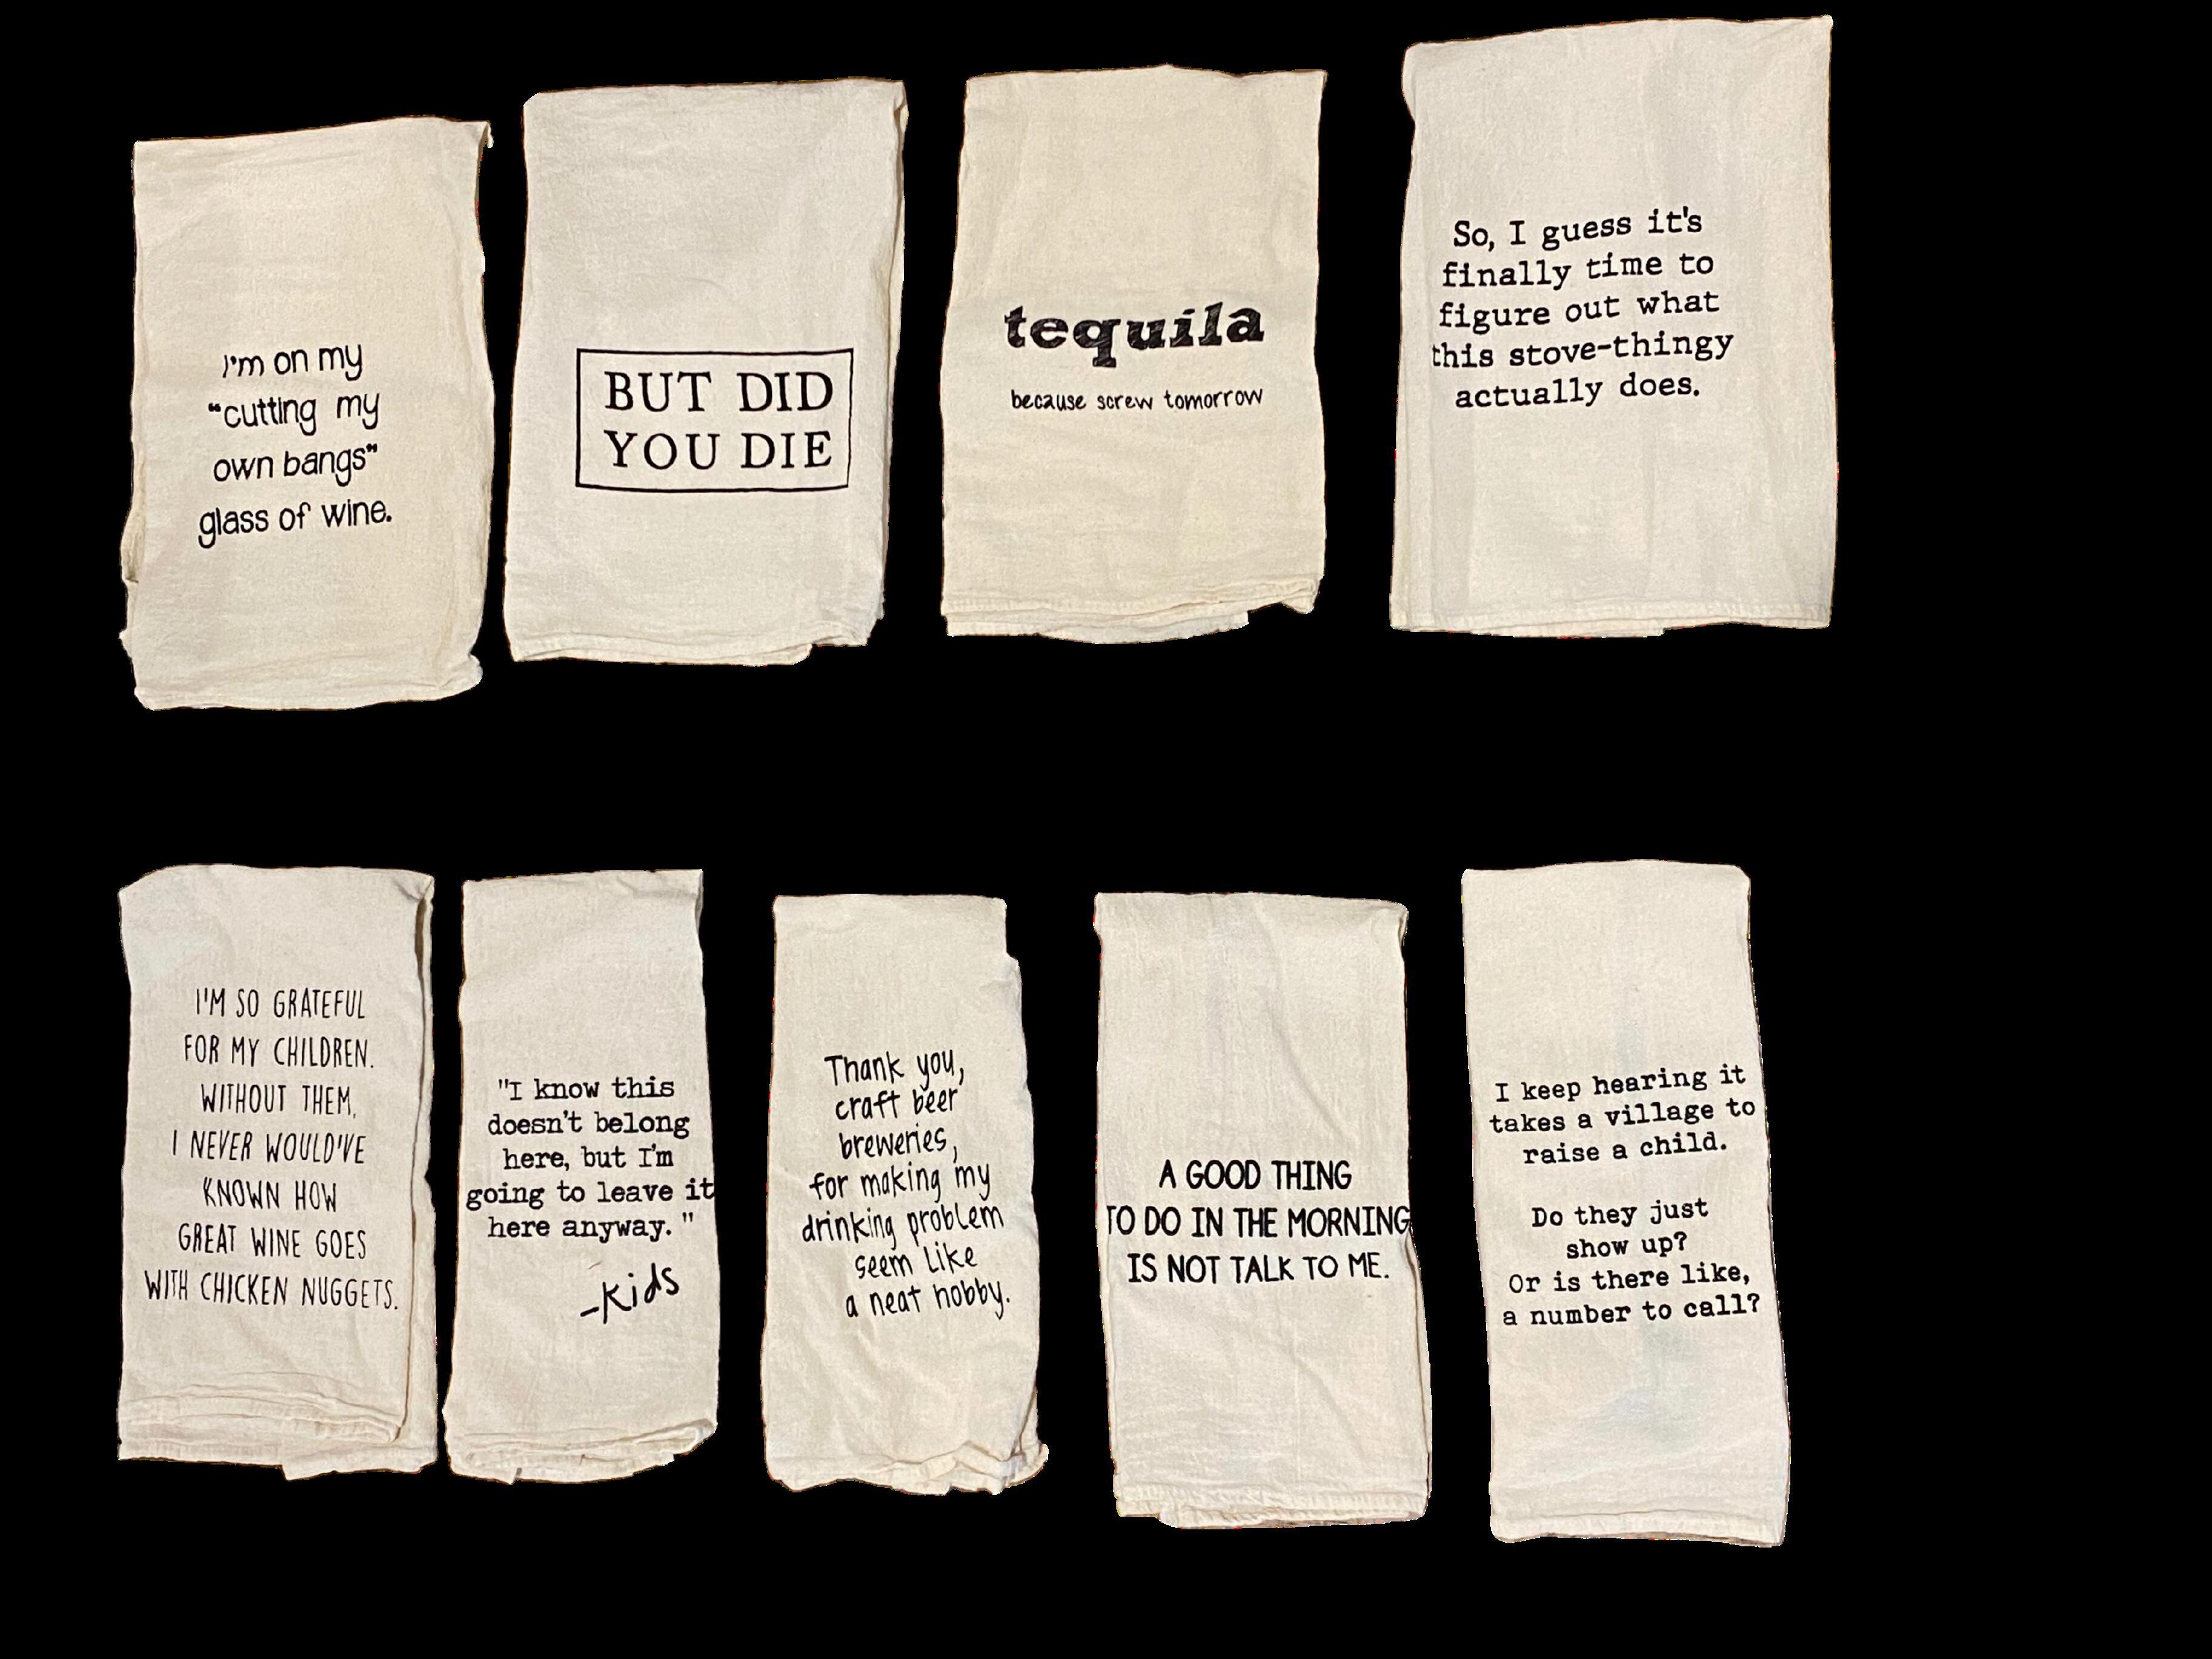 I'm on my
"cutting my
own bangs"
glass of wine.
BUT DID
YOU DIE
tequila
because screw tomorrow
So, I guess it's
finally time to
figure out what
this stove-thingy
actually does.
I'M SO GRATEFUL
FOR MY CHILDREN.
WITHOUT THEM,
I NEVER WOULD'VE
KNOWN HOW
GREAT WINE GOES
WITH CHICKEN NUGGETS.
"I know this
doesn't belong
here, but I'm
going to leave it
here anyway. "
-Kids
Thank you,
craft beer
breweries,
for making my
drinking problem
seem like
a neat hobby.
A GOOD THING
TO DO IN THE MORNING
IS NOT TALK TO ME.
I keep hearing it
takes a village to
raise a child.
Do they just
show up?
Or is there like,
a number to call?